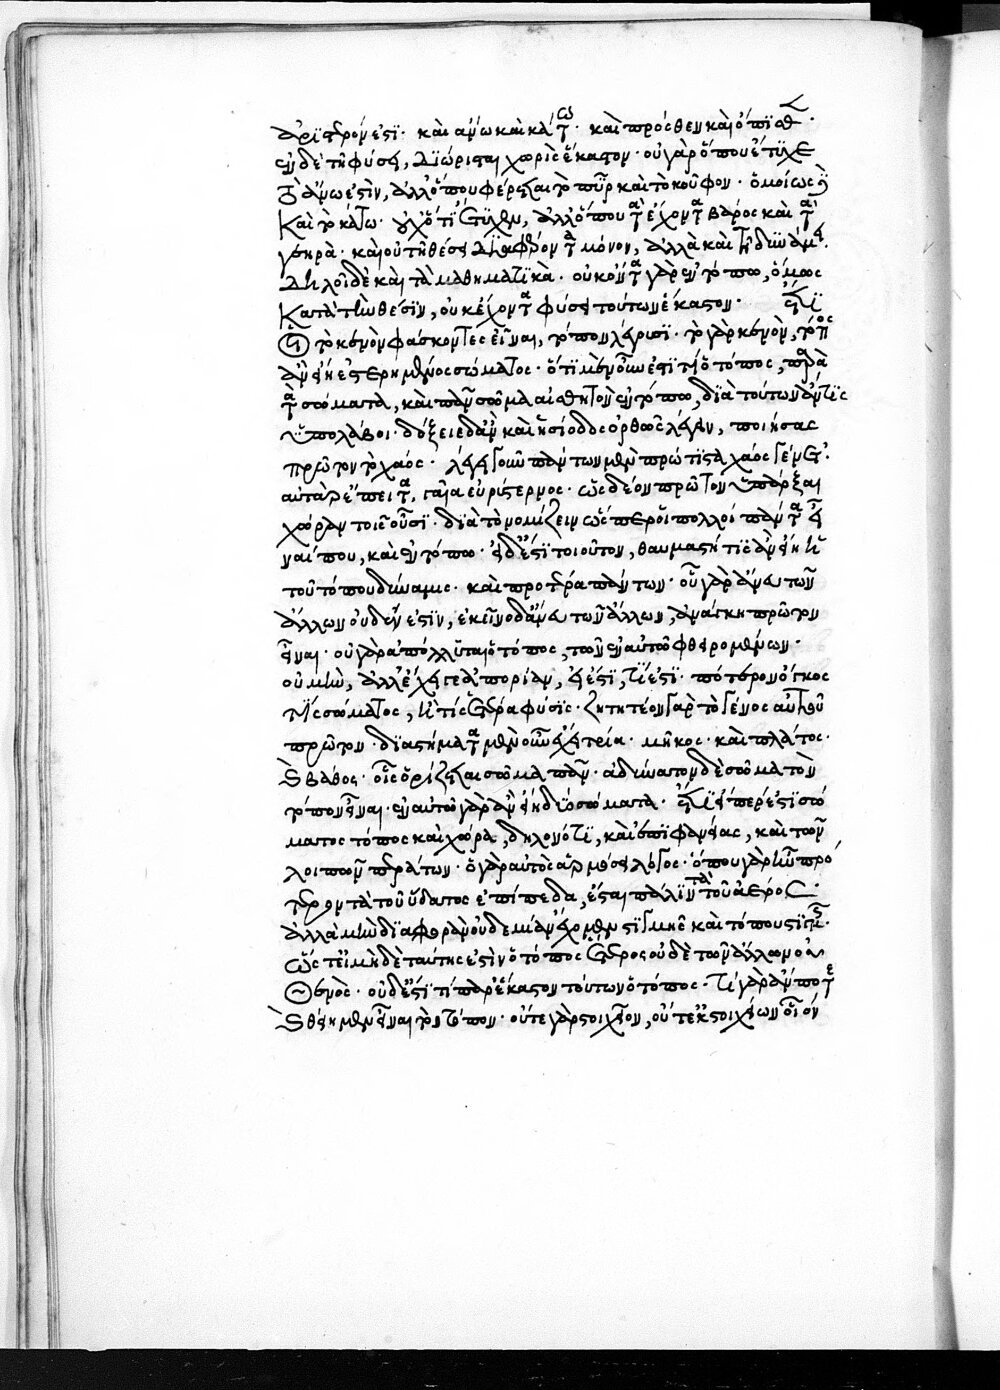 ἀριστερόν ἐστι· καὶ ἄνω καὶ κάτω· καὶ πρόσθεν καὶ ὄπισθεν·
ἐν δὲ τῇ φύσει, διώρισται χωρὶς ἕκαστον· οὐ γὰρ ὅπου ἔτυχε
τὸ ἄνω ἐστὶν, ἀλλ' ὅπου φέρεται τὸ πῦρ καὶ τὸ κοῦφον· ὁμοίως δὲ
καὶ τὸ κάτω· οὐχ ὅτι ἔτυχεν, ἀλλ' ὅπου τὰ ἔχοντα βάρος καὶ τὰ
γεηρά· καὶ οὐ τῇ θέσει διαφέροντα μόνον, ἀλλὰ καὶ τῇ δυνάμει.
δηλοῖ δὲ καὶ τὰ μαθηματικά· οὐκ ὄντα γὰρ ἐν τόπῳ, ὅμως
κατὰ τὴν θέσιν, οὐκ ἔχοντα φύσει τούτων ἕκαστον· ἔτι
οἱ τὸ κενὸν φάσκοντες εἶναι, τόπον λέγουσι· τὸ γὰρ κενὸν, τόπος
ἂν εἴη ἐστερημένος σώματος· ὅτι μὲν οὖν ἐστί τι ὁ τόπος, παρὰ
τὰ σώματα, καὶ πᾶν σῶμα αἰσθητὸν ἐν τόπῳ, διὰ τούτων ἄν τις
ὑπολάβοι· δόξειε δ' ἂν καὶ ἡσίοδος ὀρθῶς λέγειν, ποιήσας
πρῶτον τὸ χάος· λέγει γοῦν πάντων μὲν πρώτιστα χάος γένετ'·
αὐτὰρ ἔπειτα, γαῖα εὐρύστερνος· ὡς δέον πρῶτον ὑπάρξαι
χώραν τοῖς οὖσι· διὰ τὸ νομίζειν ὥσπερ οἱ πολλοί πάντα εἶ
ναί που, καὶ ἐν τόπῳ· εἰ δ' ἔστι τοιοῦτον, θαυμαστή τις ἂν εἴη ἡ
τοῦ τόπου δύναμις· καὶ προτέρα πάντων· οὗ γὰρ ἄνευ τῶν
ἄλλων οὐδέν ἐστιν, ἐκεῖνο δ' ἄνευ τῶν ἄλλων, ἀνάγκη πρῶτον
εἶναι· οὐ γὰρ ἀπόλλυται ὁ τόπος, τῶν ἐν αὐτῷ φθειρομένων·
οὐ μὴν, ἀλλ' ἔχει γε ἀπορίαν, εἰ ἔστι, τί ἐστι· πότερον ὄγκος
τὶς σώματος, ἤ τις ἑτέρα φύσις· ζητητέον γὰρ τὸ γένος αὐτοῦ
πρῶτον· διαστήματα μὲν οὖν ἔχει τρία· μῆκος· καὶ πλάτος·
καὶ βάθος· οἷς ὁρίζεται σῶμα πᾶν· ἀδύνατον δὲ σῶμα τὸν
τόπον εἶναι· ἐν αὐτῷ γὰρ ἂν εἴη δύο σώματα· ἔτι εἴπερ ἐστὶ σώ
ματος τόπος καὶ χώρα, δηλονότι, καὶ ἐπιφανείας, καὶ τῶν
λοιπῶν περάτων· ὁ γὰρ αὐτὸς ἁρμόσει λόγος· ὅπου γὰρ ἦν πρό
τερον τὰ τοῦ ὕδατος ἐπίπεδα, ἔσται πάλιν τὰ τοῦ ἀέρος·
ἀλλὰ μὴν διαφορὰν οὐδεμίαν ἔχομεν στιγμῆς καὶ τόπου στιγμῆς·
ὥστ' εἰ μηδὲ ταύτης ἐστὶν ὁ τόπος ἕτερος οὐδὲ τῶν ἄλλων οὐ
θενός· οὐδ' ἐστί τι παρ' ἕκαστον τούτων ὁ τόπος· τί γὰρ ἄν ποτε
καὶ θείημεν εἶναι τὸν τόπον· οὔτε γὰρ στοιχεῖον, οὔτ' ἐκ στοιχείων οἷόν